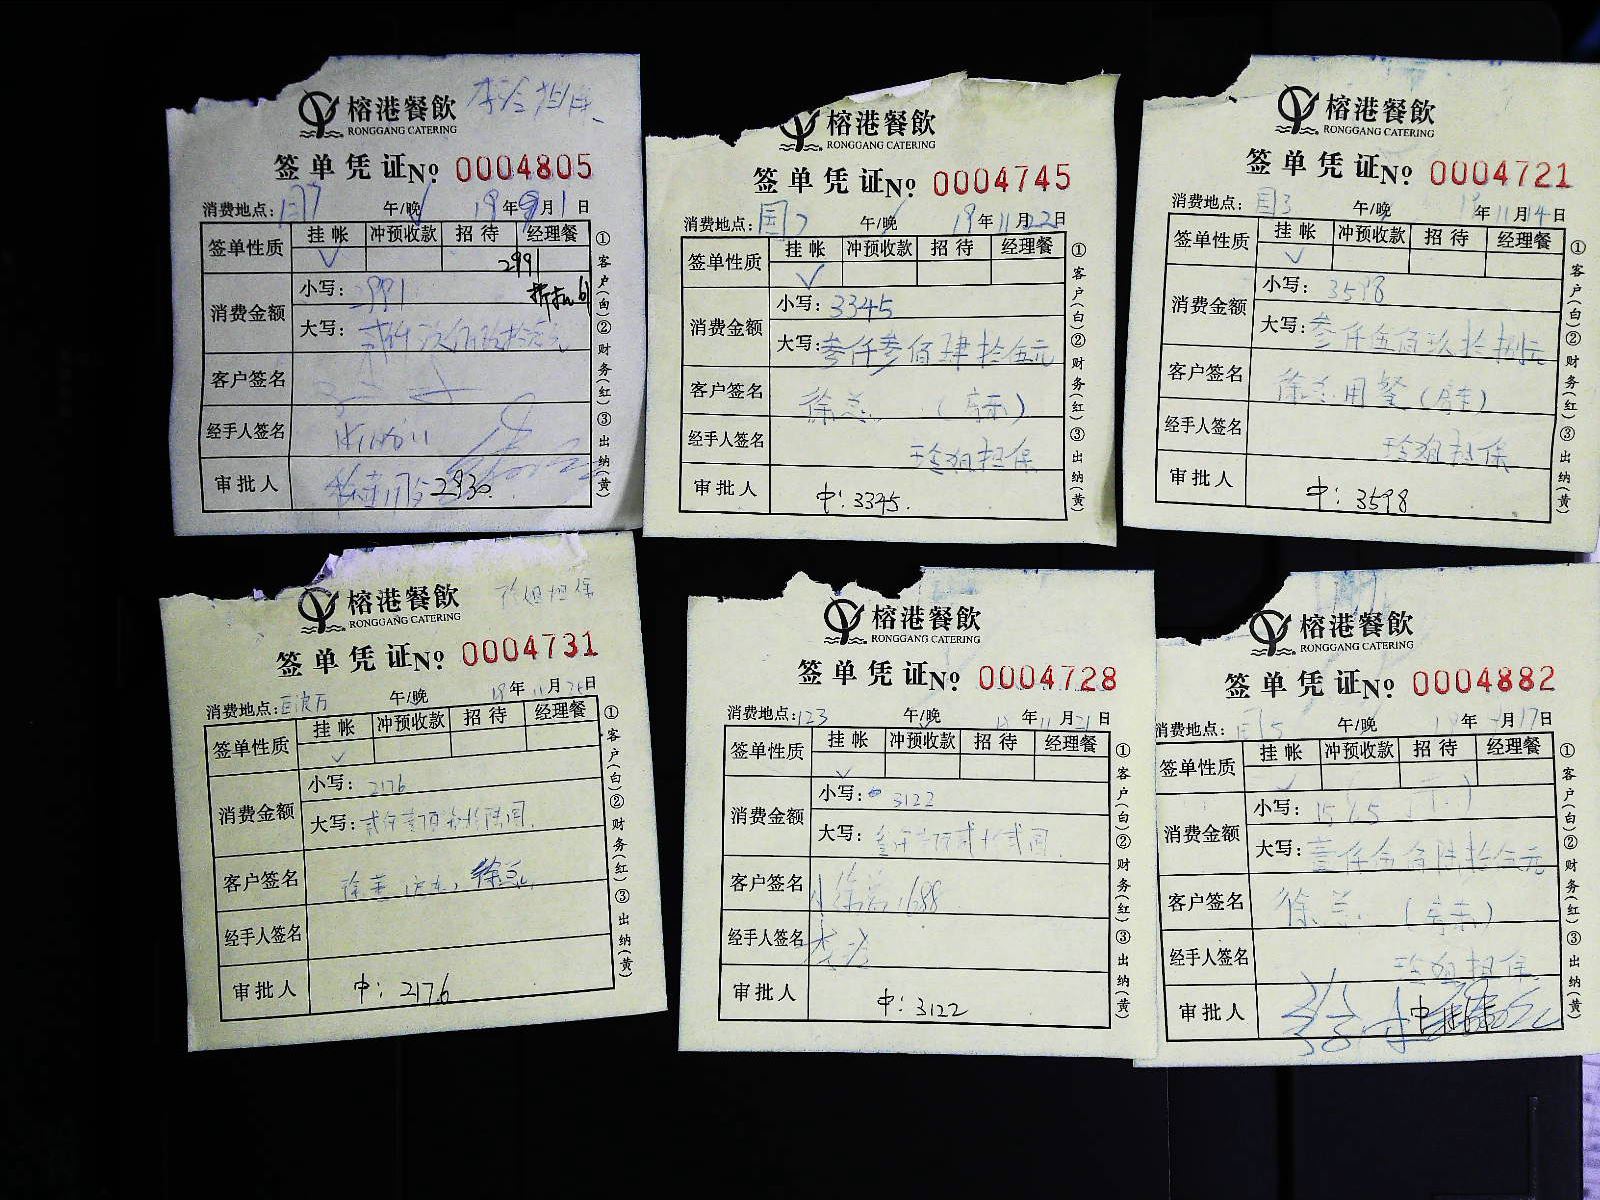 榕港餐飲
RONGGANG CATERING
签单凭证No 0004805
消费地点: 午/晚 19年9月1日
签单性质 挂帐 冲预收款 招待 经理餐
2991
消费金额 小写: 2991 折扣61
大写:
客户签名
经手人签名
审批人 2930
①客户(白)②财务(红)③出纳(黄)
榕港餐飲
RONGGANG CATERING
签单凭证No 0004745
消费地点: 国7 午/晚 19年11月22日
签单性质 挂帐 冲预收款 招待 经理餐
消费金额 小写: 3345
大写: 叁仟叁佰肆拾伍元
客户签名 徐总
经手人签名 玲姐担保
审批人 中: 3345.
①客户(白)②财务(红)③出纳(黄)
榕港餐飲
RONGGANG CATERING
签单凭证No 0004721
消费地点: 国3 午/晚 19年11月14日
签单性质 挂帐 冲预收款 招待 经理餐
消费金额 小写: 3598
大写: 叁仟伍佰玖拾捌元
客户签名 徐总用餐
经手人签名 玲姐担保
审批人 中: 3598
①客户(白)②财务(红)③出纳(黄)
榕港餐飲 玲姐担保
RONGGANG CATERING
签单凭证No 0004731
消费地点: 午/晚 19年11月 日
签单性质 挂帐 冲预收款 招待 经理餐
消费金额 小写: 2176
大写: 贰仟壹佰柒拾陆圆
客户签名 徐总
经手人签名
审批人 中: 2176
①客户(白)②财务(红)③出纳(黄)
榕港餐飲
RONGGANG CATERING
签单凭证No 0004728
消费地点: 123 午/晚 年11月21日
签单性质 挂帐 冲预收款 招待 经理餐
消费金额 小写: 3122
大写: 叁仟壹佰贰拾贰圆
客户签名 徐总 1688
经手人签名
审批人 中: 3122
①客户(白)②财务(红)③出纳(黄)
榕港餐飲
RONGGANG CATERING
签单凭证No 0004882
消费地点: 午/晚 年 月17日
签单性质 挂帐 冲预收款 招待 经理餐
消费金额 小写: 1565
大写: 壹仟伍佰陆拾伍元
客户签名 徐总
经手人签名 玲姐担保
审批人 中:
①客户(白)②财务(红)③出纳(黄)